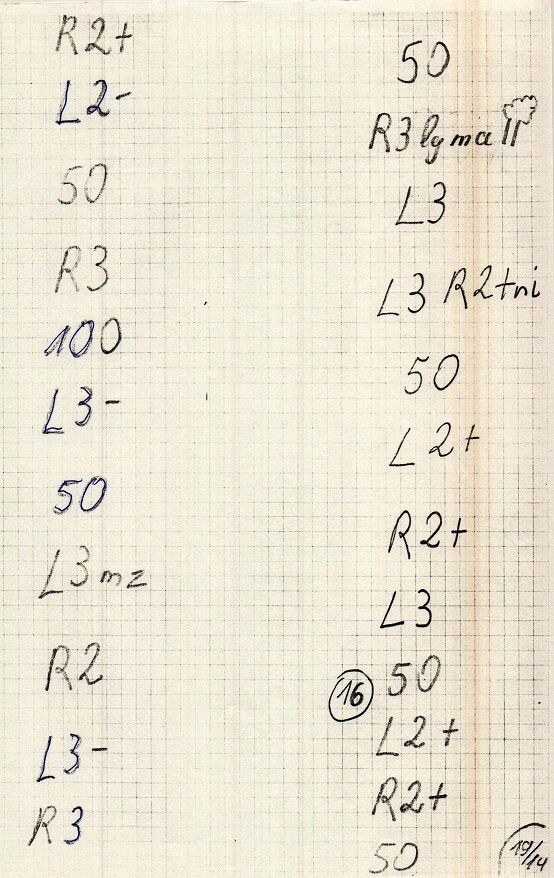 R2+
L2-
50
R3
100
L3-
50
L3mz
R2
L3-
R3
50
R3 lgma
L3
L3 R2+ni
50
L2+
R2+
L3
16 50
L2+
R2+
50
19/14